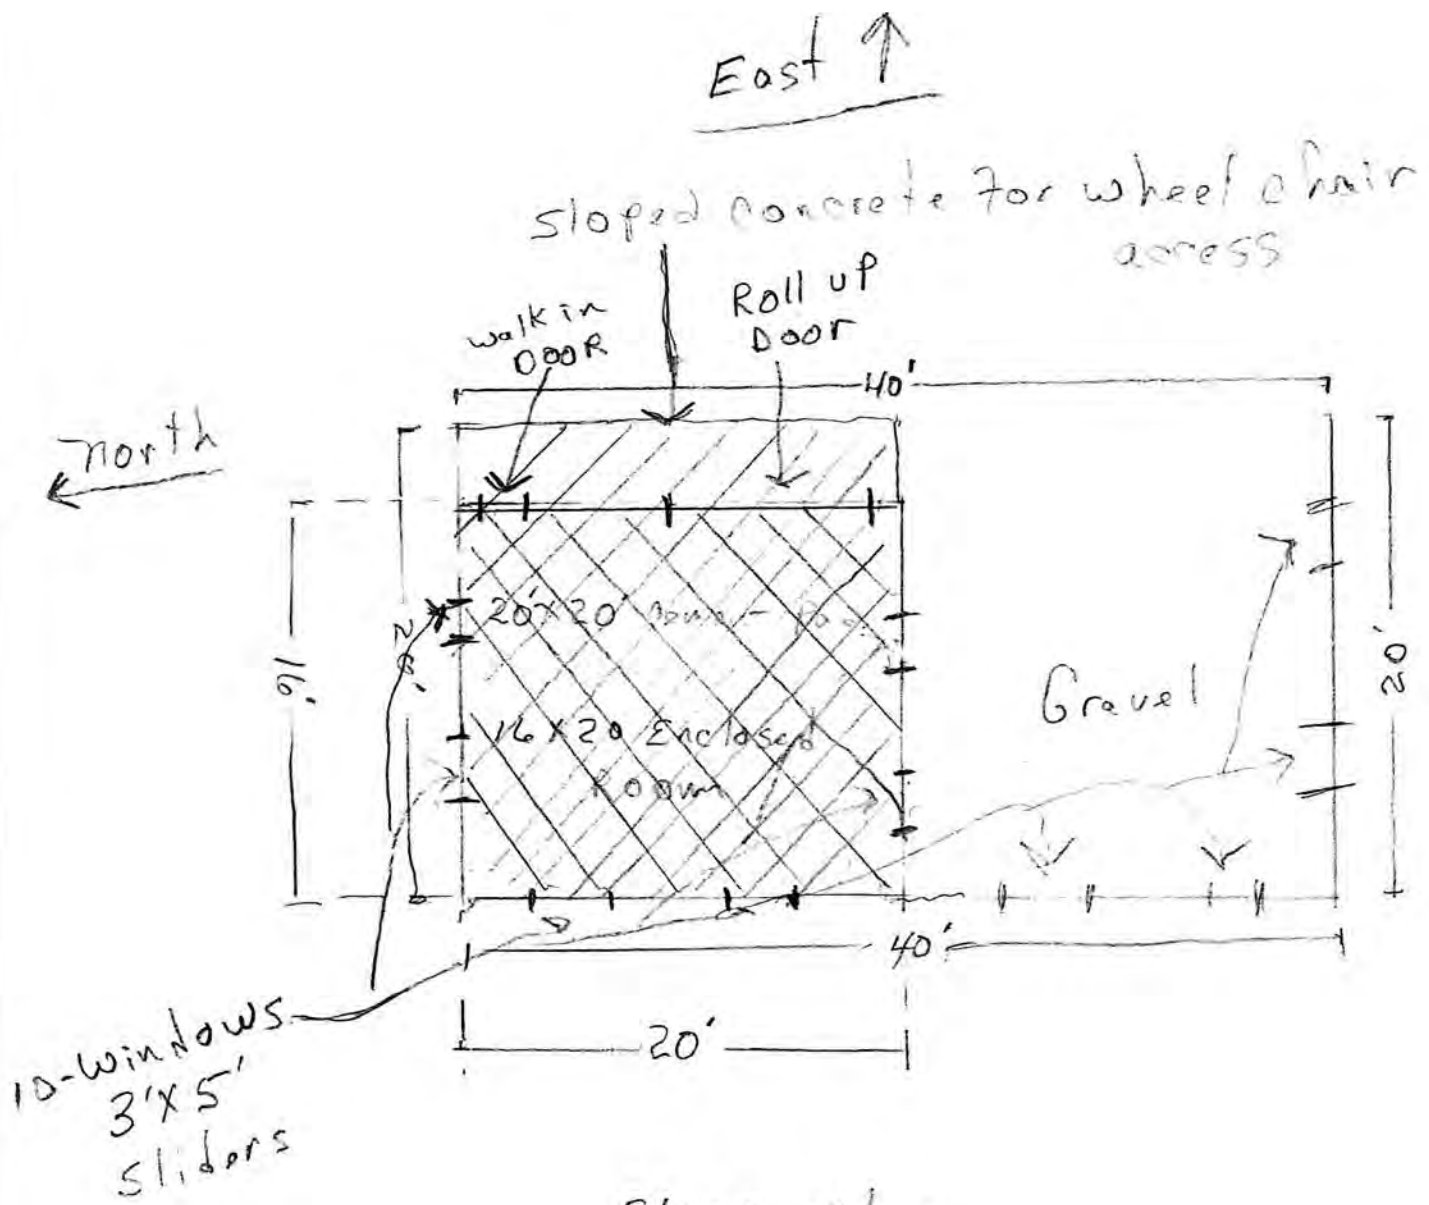 East
sloped concrete for wheel chair
access
walk in
DOOR
Roll up
Door
40'
north
16'
20'
20'
20'x20'
16 x 20 Enclosed
Room
Gravel
40'
20'
10-Windows
3'x5'
Sliders